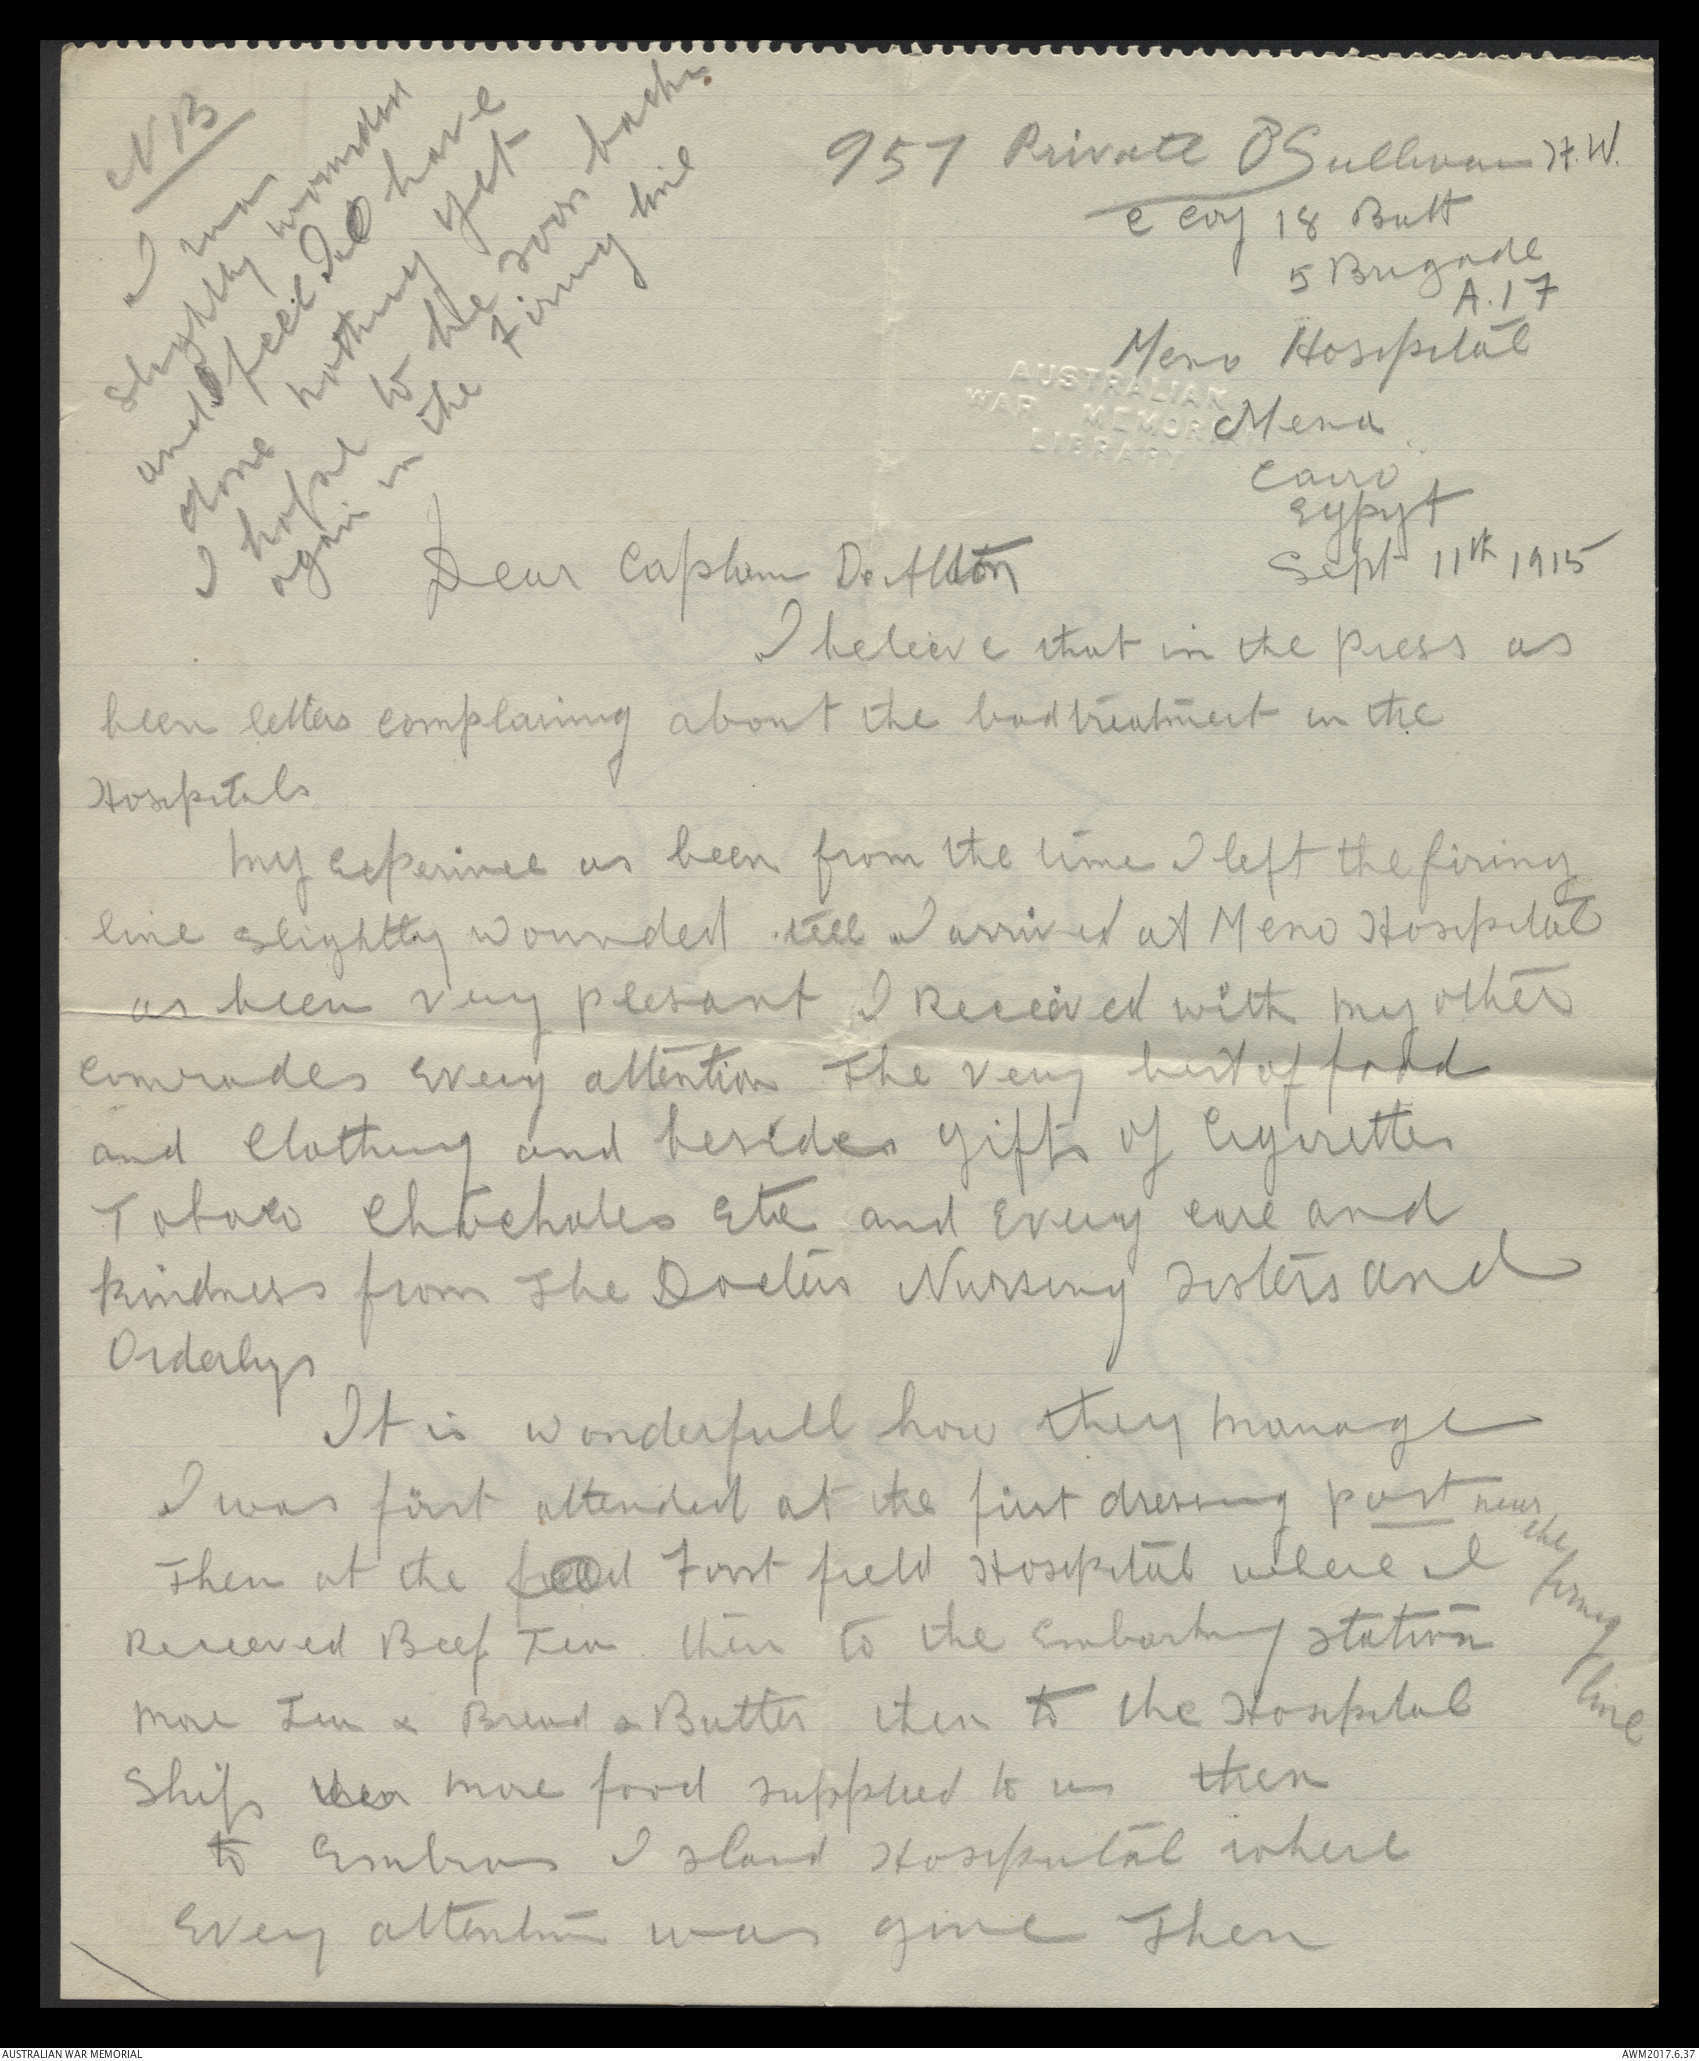 957 Private O'Sullivan H.W.
C Coy 18 Batt
5 Brigade
A.17
Mena Hospital
Mena
Cairo
Eypyt
Sept 11th 1915
NB
I was
slightly wounded
and feel I have
done nothing yet
I hope to be soon back
again in the Firing line
AUSTRALIAN
WAR MEMORIAL
LIBRARY
Dear Captain
I beleive that in the press as
been letters complaining about the bad treatment in the
Hospitals
My experince as been from the time I left the firing
line slightly wounded till I arrived at Mena Hospital
as been very plesant I Received with my other
comrades every attention The very best of food
and Clothing and besides gifts of Cigarettes
Tobaco Chocholes Etc and Every care and
kindness from The Docters Nursing sisters and
Orderlys
It is wonderfull how they manage
I was first attended at the first dressing post near the firing line
Then at the First field Hospital where I
Received Beef Tea then to the Embarking station
More Tea & Bread & Butter then to the Hospital
Ship more food supplied to us then
to Embros Island Hospital where
Every attention was give Then
AUSTRALIAN WAR MEMORIAL
AWM2017.6.37